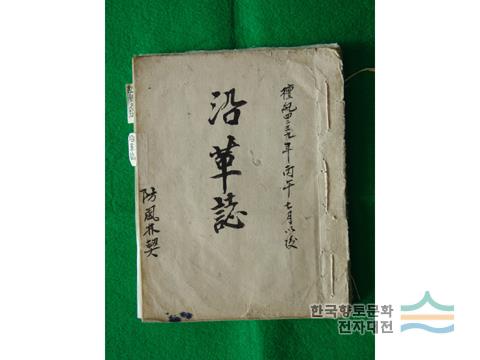 檀紀四二三九年丙午七月以後
沿革誌
防風林契
한국향토문화
전자대전